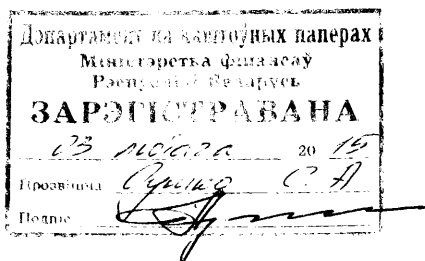 Дэпартамент па каштоўных паперах
Міністэрства фінансаў
Рэспублікі Беларусь
ЗАРЭГІСТРАВАНА
03 лютага 20 15
Прозвішча С. А
Подпіс